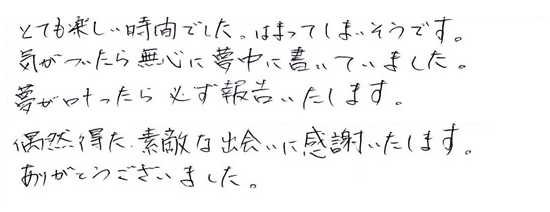 とても楽しい時間でした。はまってしまいそうです。
気がついたら無心に夢中に書いていました。
夢が叶ったら必ず報告いたします。
偶然得た素敵な出会いに感謝いたします。
ありがとうございました。